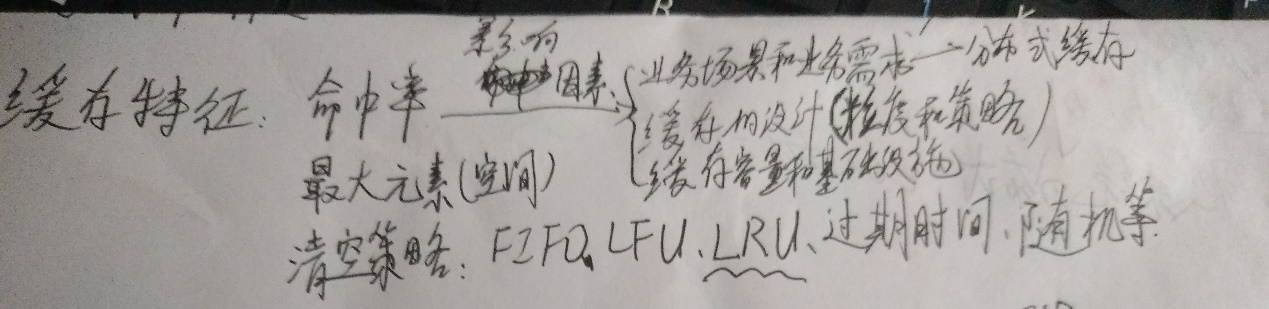 影响
缓存特征: 命中率 因素: 业务场景和业务需求 — 分布式缓存
缓存的设计(粒度和策略)
缓存容量和基础设施
最大元素(空间)
清空策略: FIFO、LFU、LRU、过期时间、随机等